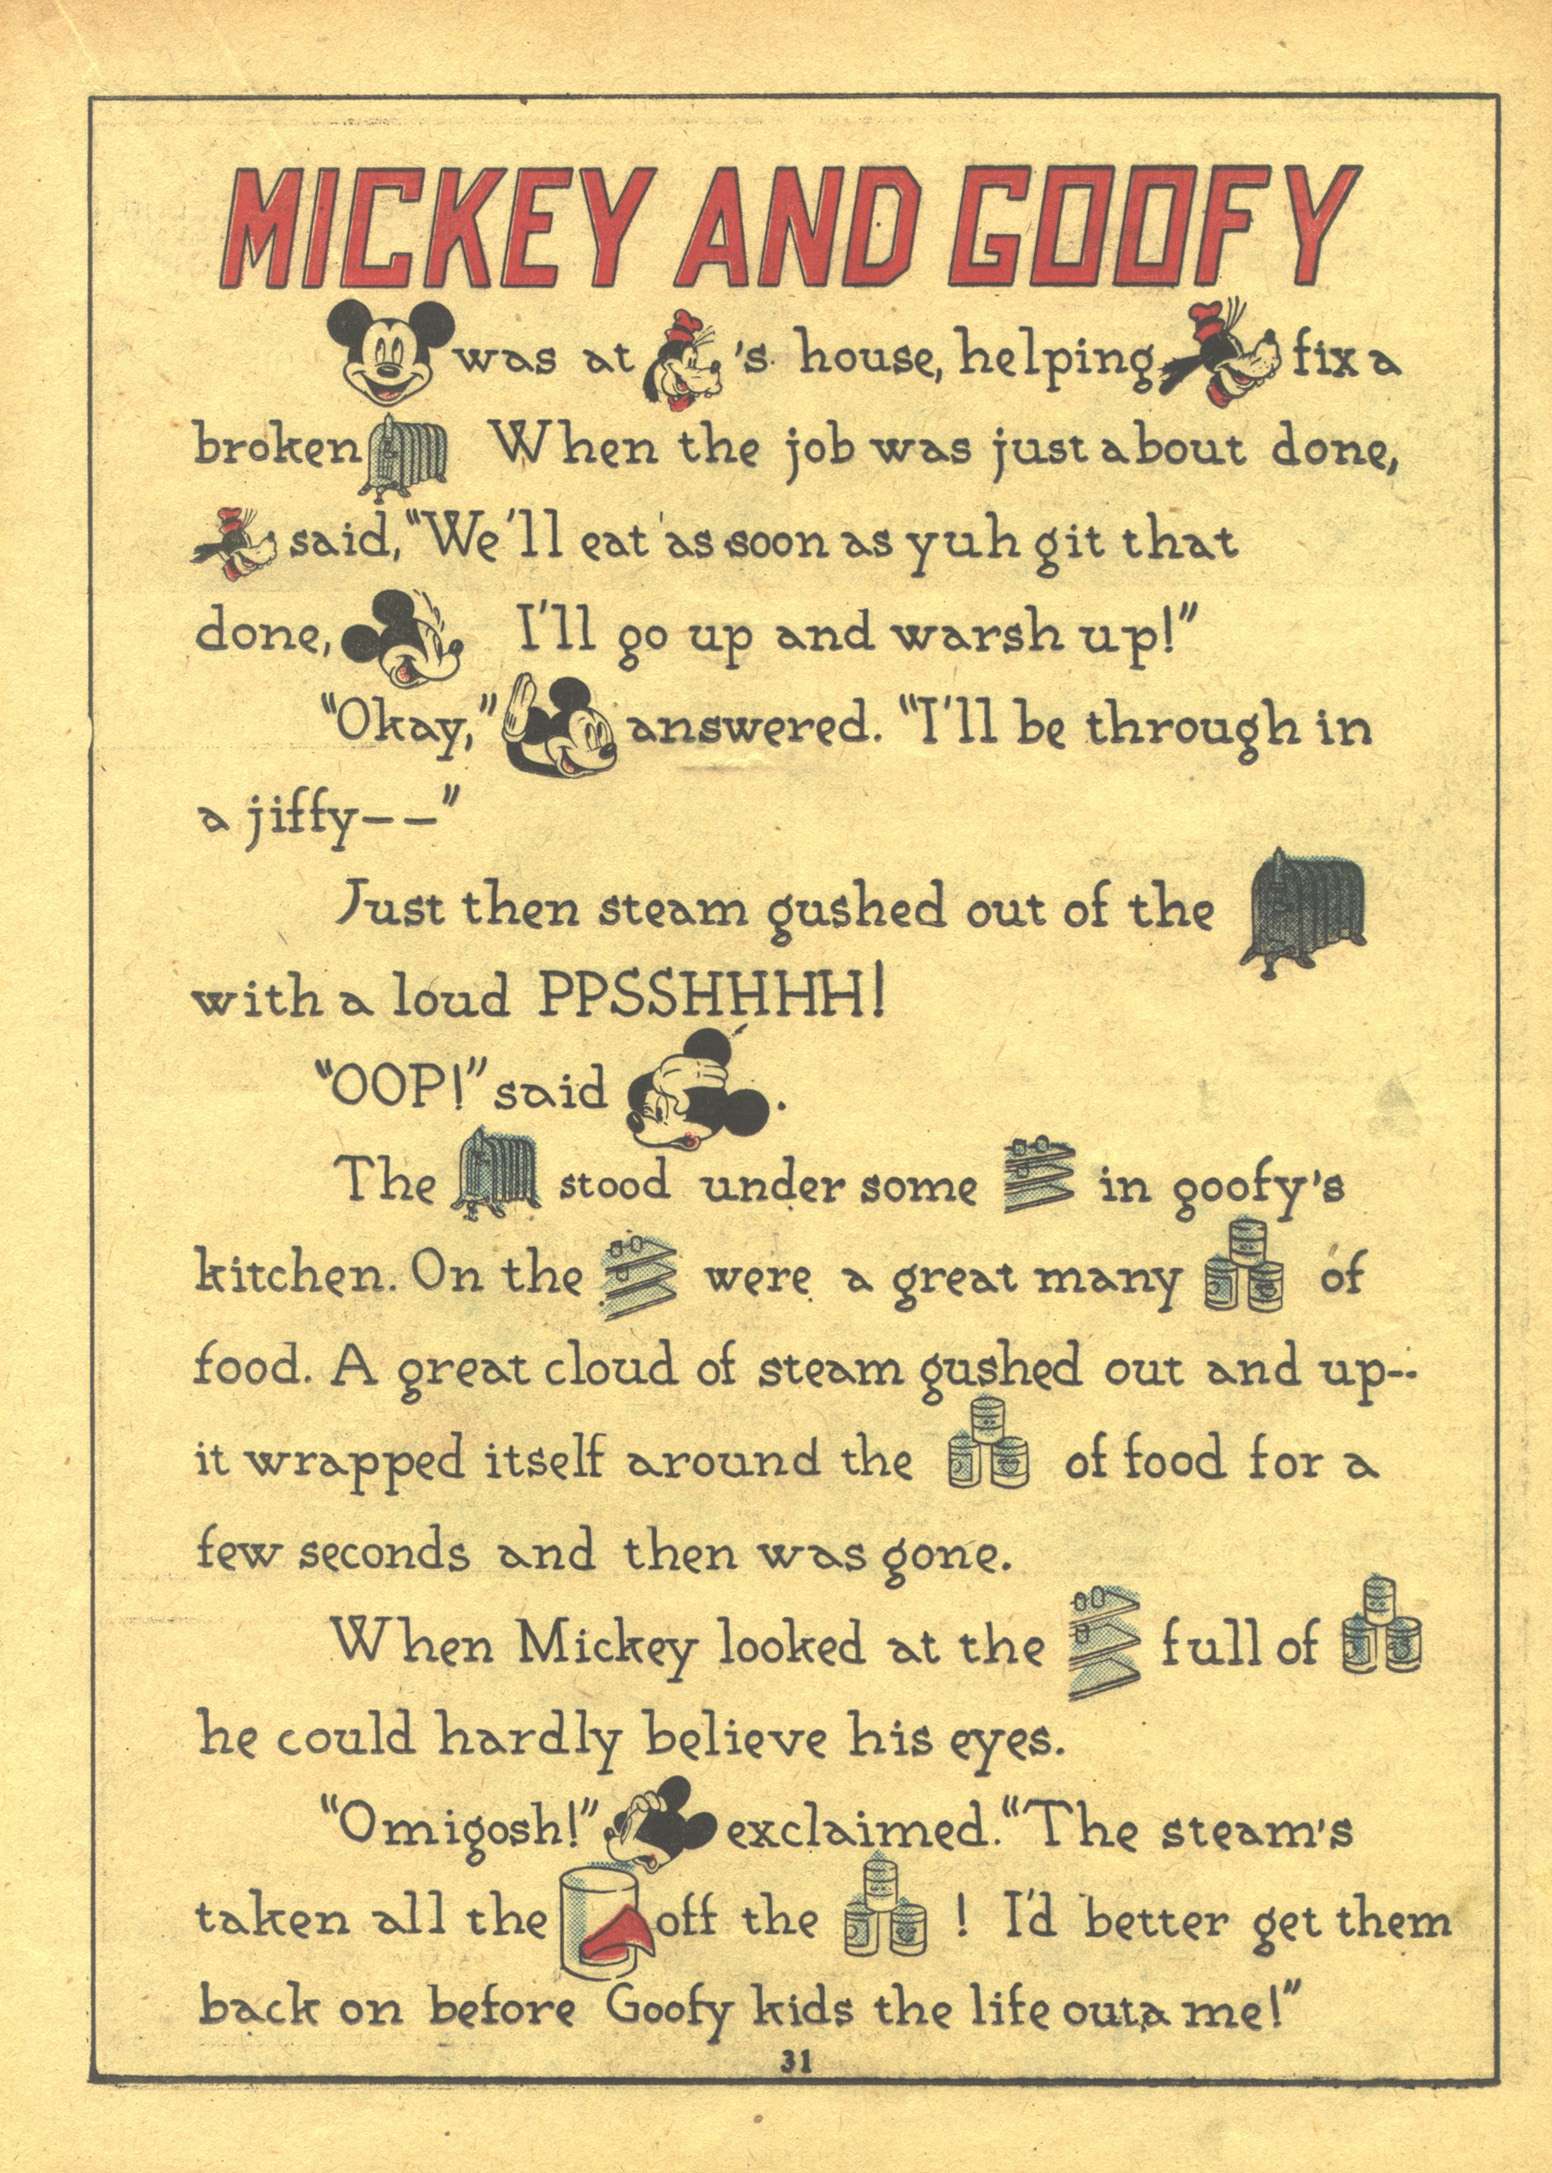 MICKEY AND GOOFY
was at 's house, helping fix a
broken When the job was just about done,
said, "We'll eat as soon as yuh git that
done, I'll go up and warsh up!"
"Okay," answered. "I'll be through in
a jiffy--"
Just then steam gushed out of the
with a loud PPSSHHHH!
"OOP!" said .
The stood under some in goofy's
kitchen. On the were a great many of
food. A great cloud of steam gushed out and up--
it wrapped itself around the of food for a
few seconds and then was gone.
When Mickey looked at the full of
he could hardly believe his eyes.
"Omigosh!" exclaimed. "The steam's
taken all the off the ! I'd better get them
back on before Goofy kids the life outa me!"
31